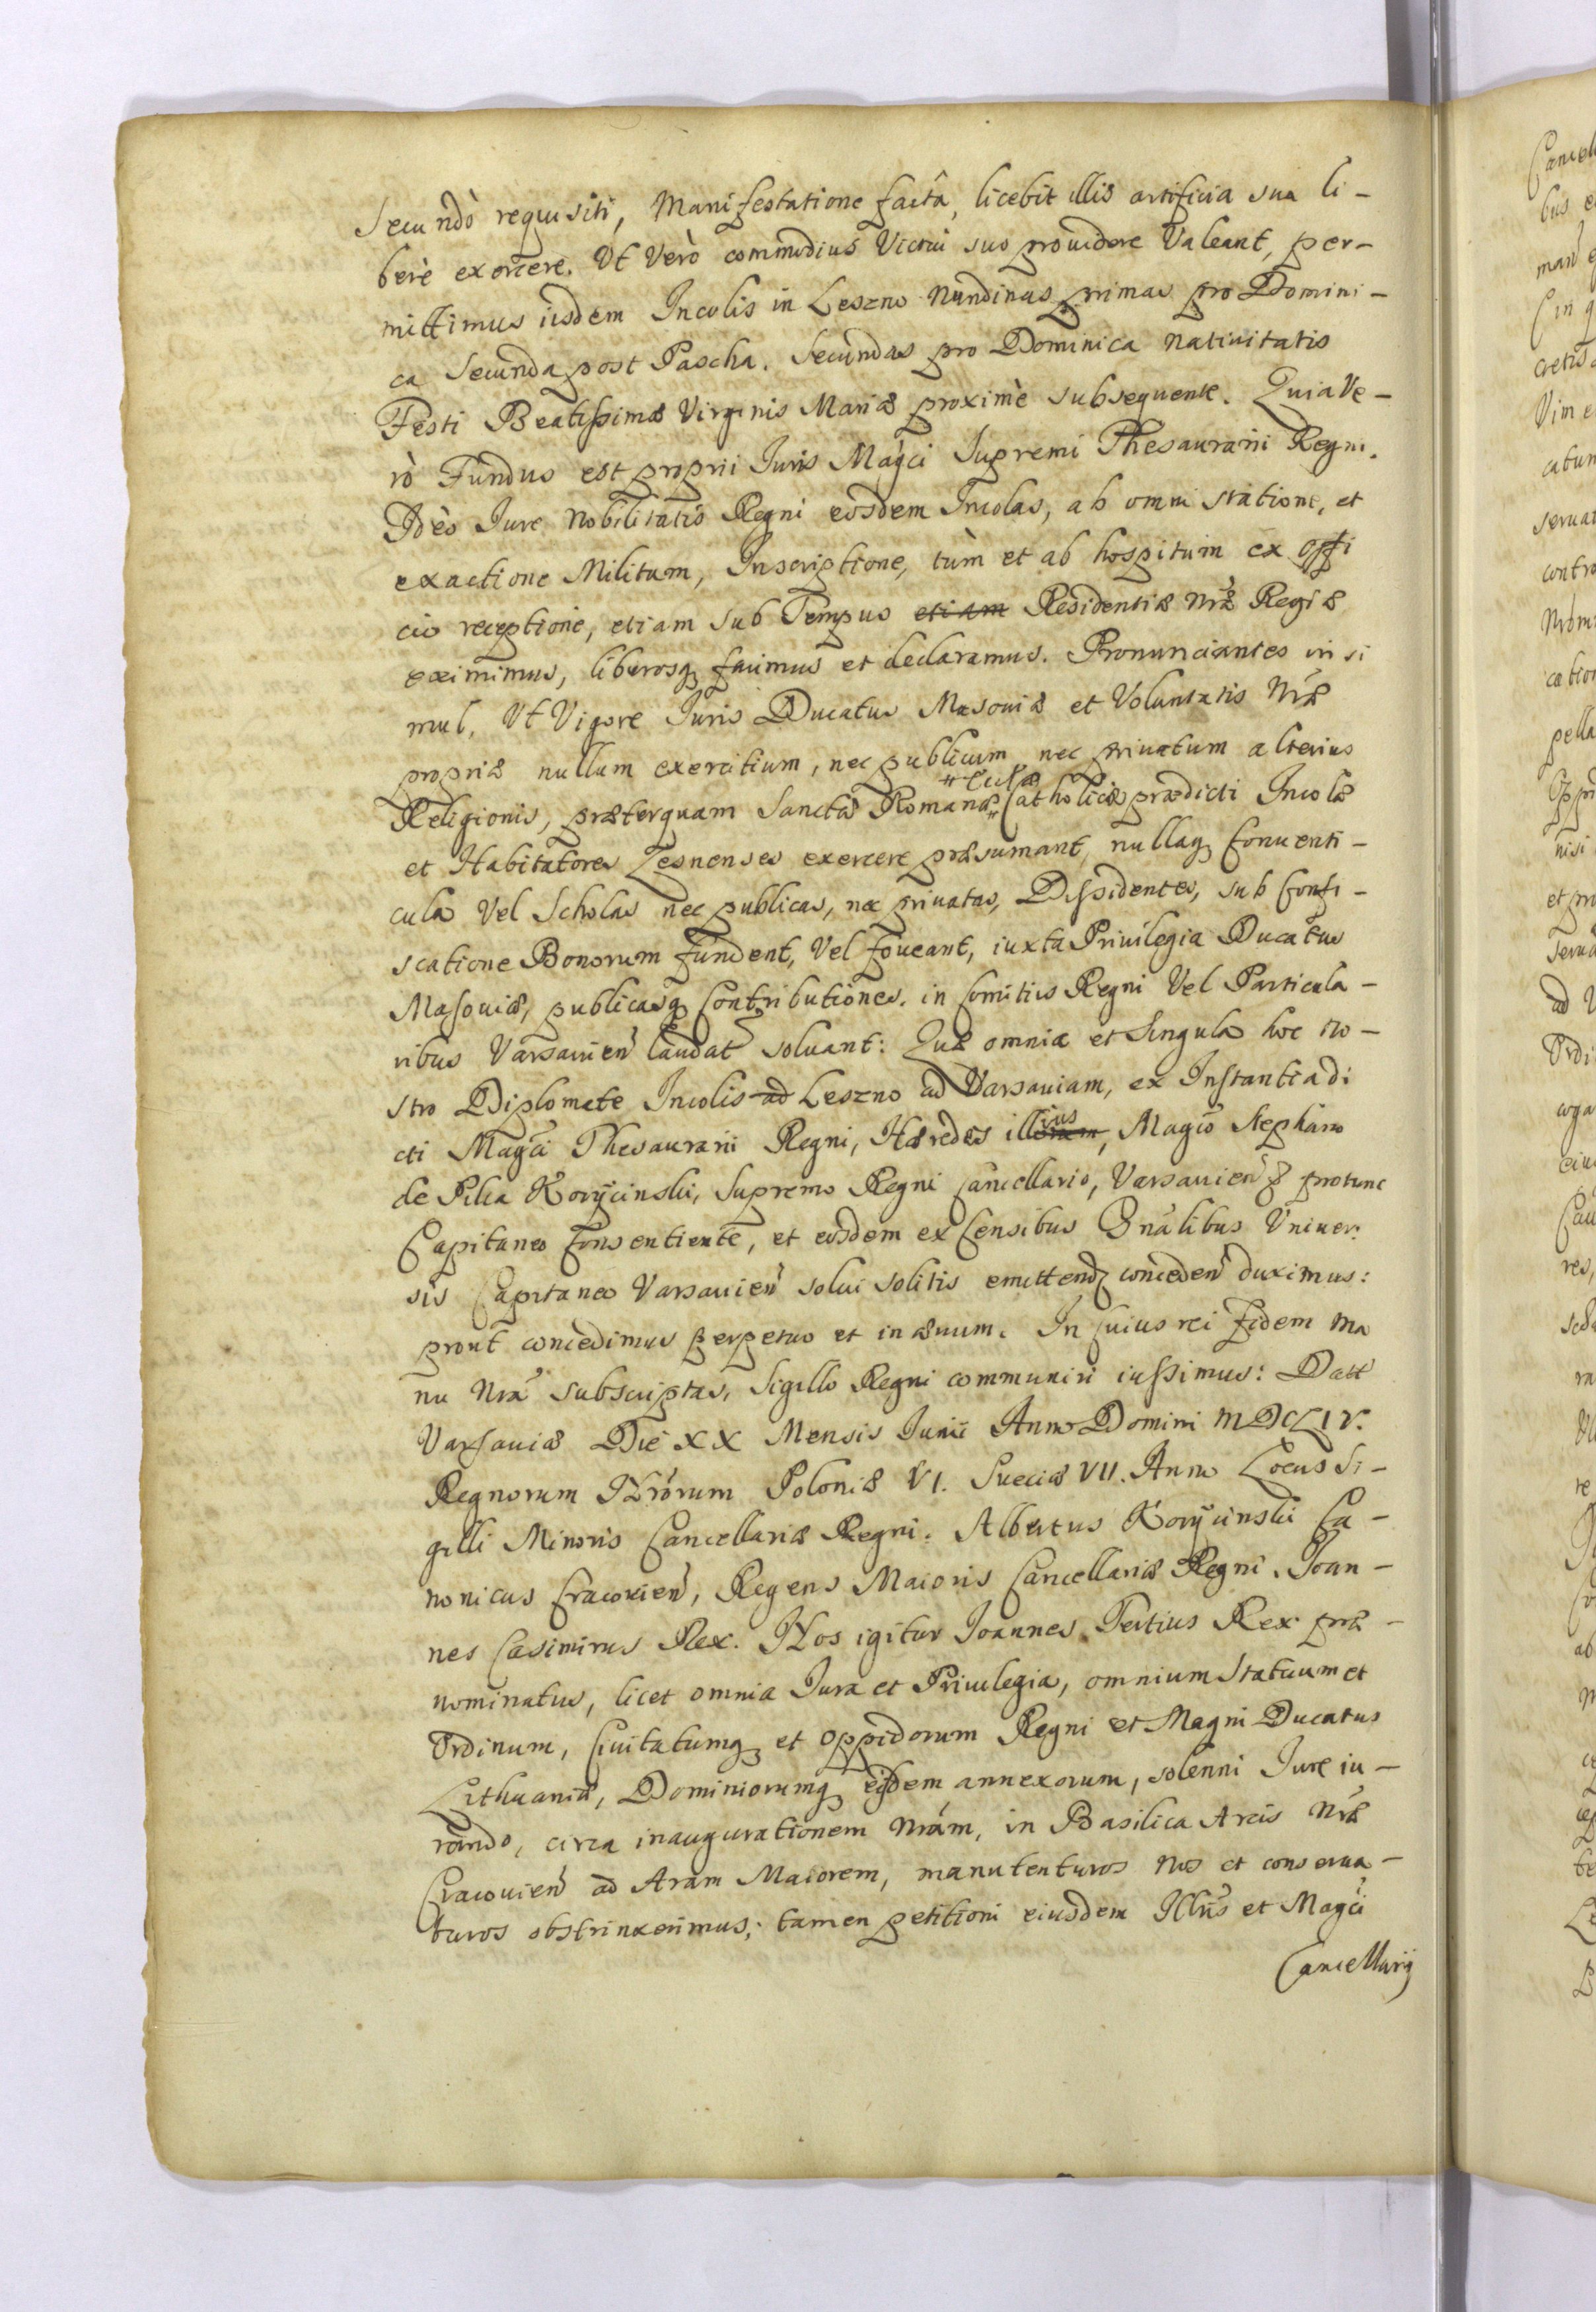 Secundò requisiti, Manifestatione factâ, licebit illis artificia sua li-
berè exercere. Vt Verò commodius Victui suo prouidere Valeant, per-
mittimus iisdem Incolis in Leszno Nundinas primas pro Domini-
ca Secunda post Pascha. Secundas pro Dominica Natiuitatis
Festi Beatissimæ Virginis Mariæ proximè subsequente. Quia Ve-
rò Fundus est proprii Iuris Magci Supremi Thesaurarii Regni.
Ideò Iure Nobilitatis Regni eosdem Incolas, ab omni statione, et
exactione Militum, Inscriptione, tùm et ab hospitum ex offi
cio receptione, etiam sub Tempus etiam Residentiæ Nræ Regiæ
eximimus, liberosq facimus et declaramus. Pronunciantes in si
mul, Vt Vigore Iuris Ducatus Masouiæ et Voluntatis Nræ
propriæ nullum exercitium, nec publicum nec priuatum alterius
Religionis, præterquam Sanctæ Romanæ Catholicæ prædicti Incolæ
et Habitatores Lesnenses exercere præsumant, nullaq Conuenti-
cula Vel Scholas nec publicas, nec priuatas, Dissidentes, sub Confi-
scatione Bonorum fundent, Vel foueant, iuxta Priuilegia Ducatus
Masouiæ, publicasq Contributiones. in Comitiis Regni Vel Particula-
ribus Varsauien laudat soluant: Quæ omnia et Singula hoc no-
stro Diplomate Incolis ad Leszno ad Varsauiam, ex Instantia di
cti Magci Thesaurarii Regni, Hæredis illius, Magco Stephano
de Pilca Koryciński, Supremo Regni Cancellario, Varsauien protunc
Capitaneo Consentiente, et eosdem ex Censibus Gnalibus Vniuer
sis Capitaneo Varsauien solui solitis emittend conceden duximus:
prout concedimus perpetuo et in æuum. In Cuius rei fidem ma
nu Nra subscriptas, Sigillo Regni communiri iussimus: Datt
Varsauiæ Die XX Mensis Iunii Anno Domini MDCLIV.
Regnorum Nrorum Poloniæ VI. Sueciæ VII. Anno Locus Si-
gilli Minoris Cancellariæ Regni. Albertus Koryciński Ca-
nonicus Cracouien, Regens Maioris Cancellariæ Regni. Ioan-
nes Casimirus Rex. Nos igitur Ioannes Tertius Rex præ-
nominatus, licet omnia Iura et Priuilegia, omnium Statuum et
Ordinum, Ciuitatumq et Oppidorum Regni et Magni Ducatus
Lithuaniæ, Dominiorumq eisdem annexorum, solenni Iure iu-
rando, circa inaugurationem Nram, in Basilica Arcis Nræ
Cracouien ad Aram Maiorem, manutenturos Nos et conserua-
turos obstrinxerimus; tamen petitioni eiusdem Illris et Magci
Cancellarij